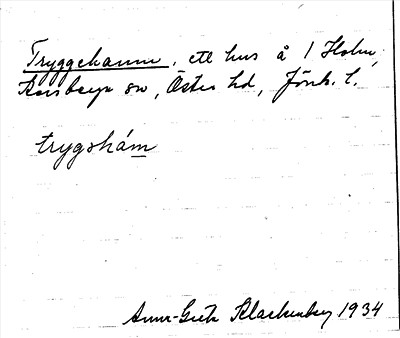 Tryggehamn, ett hus å 1 Holm,
sn, Östra hd, Jönk. l.
trygəhám
Anna-Greta Klackenberg 1934